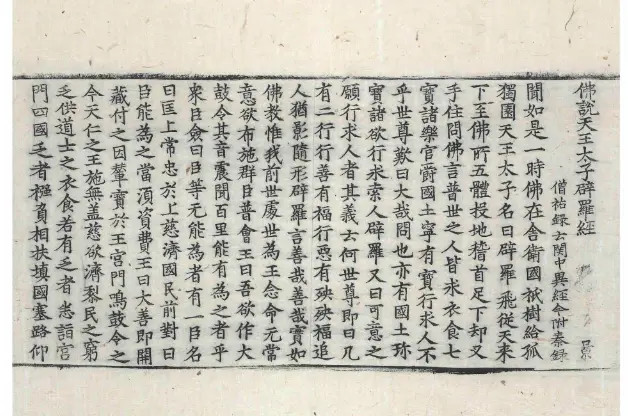 佛說天王太子辟羅經
僧祐録云関中異經今附秦録 景
聞如是一時佛在舍衛國祇樹給孤
獨園天王太子名曰辟羅飛從天来
下至佛所五體投地稽首足下却叉
手住問佛言普世之人皆求衣食七
寶諸樂官爵國土寧有寶行求人不
乎世尊歎曰大哉問也亦有國土珎
寶諸欲行求索人辟羅又曰可意之
願行求人者其義云何世尊即曰凡
有二行行善有福行惡有殃殃福追
人猶影隨形辟羅言善哉善哉實如
佛教惟我前世處世為王念命无常
意欲布施群臣普會王曰吾欲作大
鼓令其音震聞百里能有為之者乎
衆臣僉曰臣等无能為者有一臣名
曰匡上常忠於上慈濟國民前對曰
臣能為之當湏資費王曰大善即開
藏付之因輦寶於王宮門鳴鼓令之
今天仁之王施無盖慈欲濟黎民之窮
乏供道士之衣食若有乏者悉詣宮
門四國乏者襁負相扶填國塞路仰